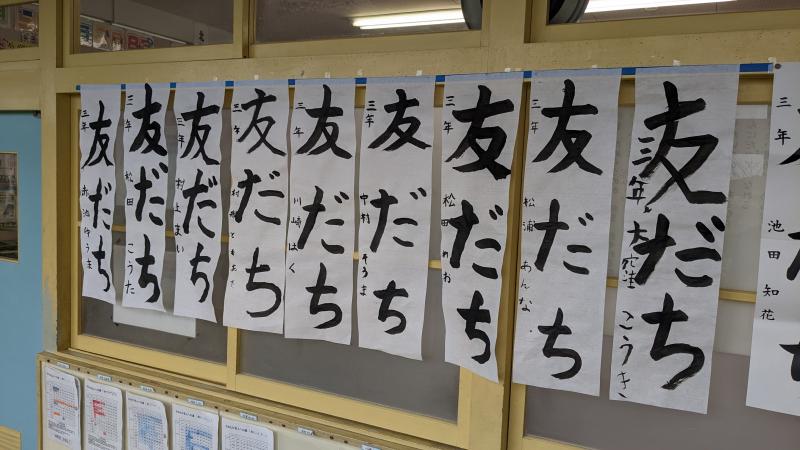 友だち
三年
友だち
三年 松田 こうた
友だち
三年 村上 まい
友だち
三年
友だち
三年 川崎 はく
友だち
三年 中村 そうま
友だち
三年 松田 れお
友だち
三年 松浦 あんな
友だち
三年 こうき
三年 池田 知花